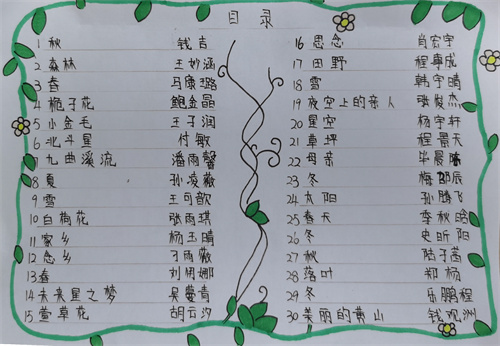 目录
1 秋 钱吉
2 森林 王妙涵
3 春 马康璐
4 栀子花 鲍金晶
5 小金毛 王子润
6 北斗星 付敏
7 九曲溪流 潘雨馨
8 夏 孙凌薇
9 雪 王可歆
10 白梅花 张雨琪
11 家乡 杨玉晴
12 念乡 雨薇
13 春 刘娜
14 未来星之梦 吴蔓青
15 萱草花 胡云汐
16 思念 肖宏宇
17 田野 程成
18 雪 韩宇晴
19 夜空上的亲人 张俊杰
20 星空 杨宇轩
21 草坪 程景天
22 母亲 毕晨
23 冬 梅辰
24 太阳 孙腾飞
25 春天 李秋晗
26 冬 史昕阳
27 秋 陆子菡
28 落叶 郑杨
29 冬 乐鹏程
30 美丽的黄山 钱观洲